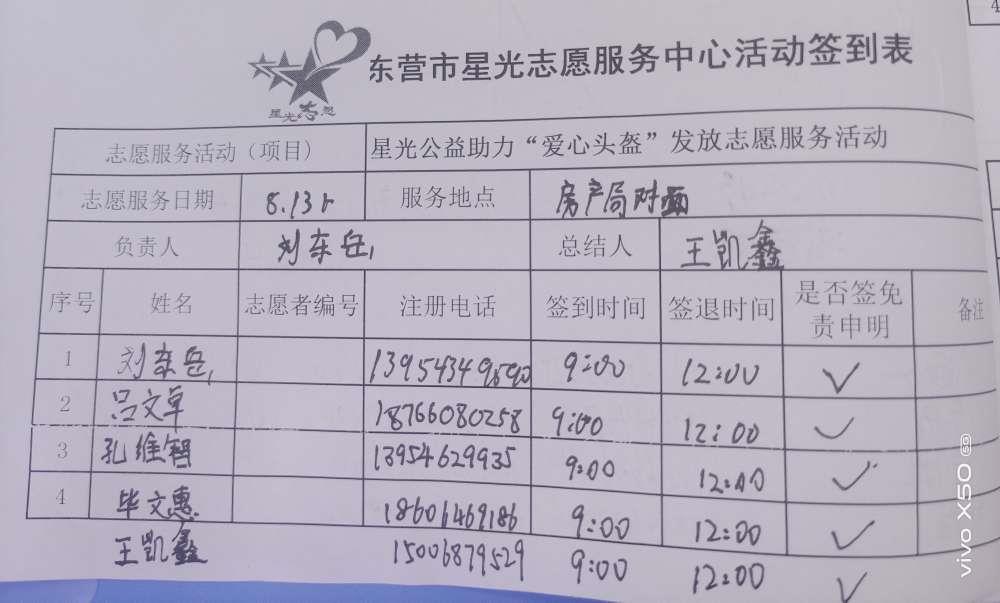 4
东营市星光志愿服务中心活动签到表
星光志愿
志愿服务活动（项目） 星光公益助力“爱心头盔”发放志愿服务活动
志愿服务日期 8.13 服务地点 房产局对面
负责人 刘东岳 总结人 王凯鑫
序号 姓名 志愿者编号 注册电话 签到时间 签退时间 是否签免责申明 备注
1 刘东岳 9:00 12:00 ✓
2 吕文卓 18766080258 9:00 12:00 ✓
3 孔维智 13954629935 9:00 12:00 ✓
4 毕文惠 18601469186 9:00 12:00 ✓
王凯鑫 15006879529 9:00 12:00 ✓
vivo X50 5G